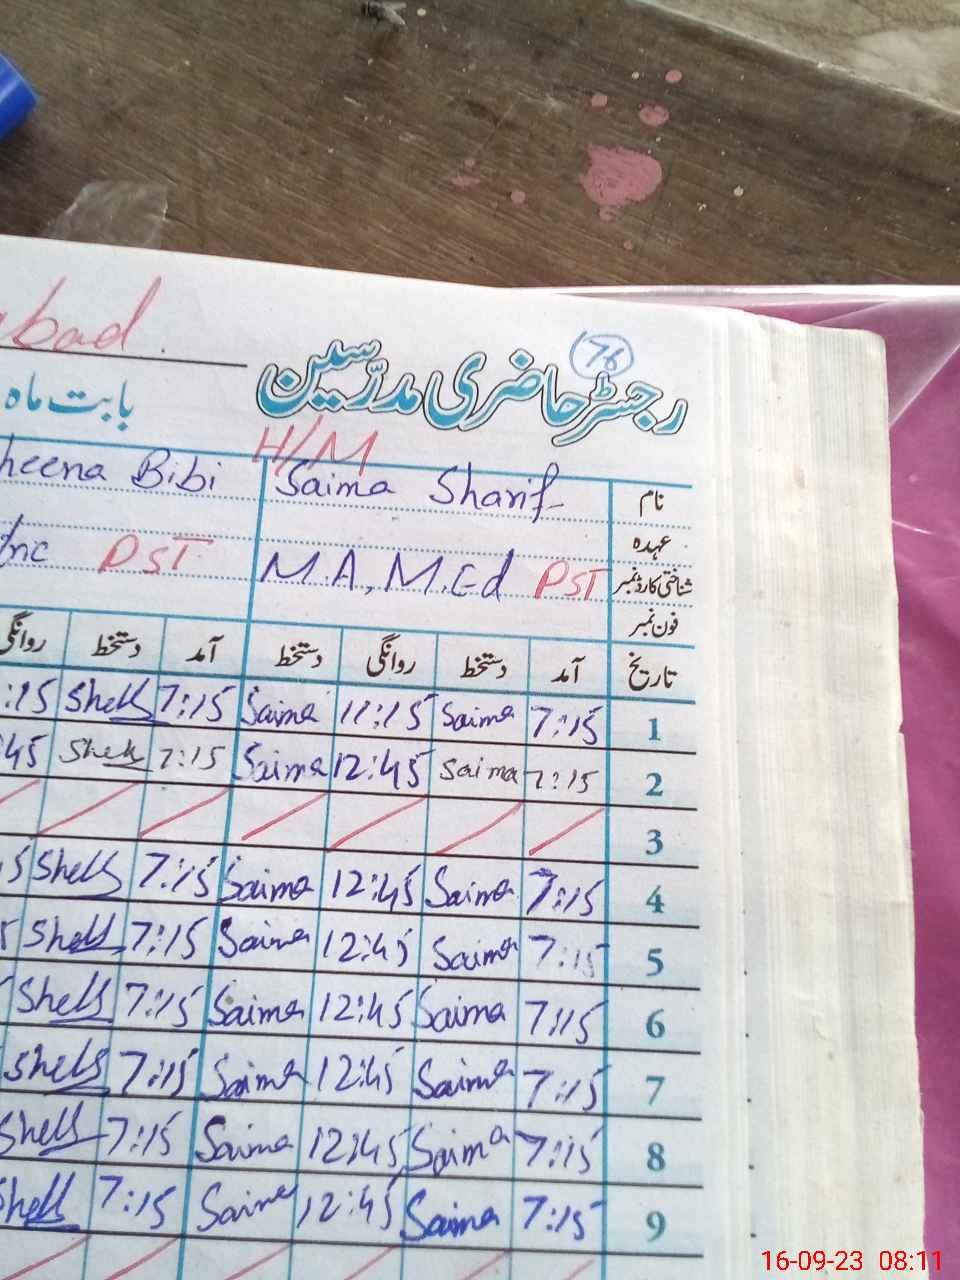 bad
76
رجسٹر حاضری مدرّسین
بابت ماہ
H/M
نام Saima Sharif heena Bibi
عہدہ
شناختی کارڈ نمبر PST M A, M.Ed PST
فون نمبر
تاریخ آمد دستخط روانگی دستخط آمد دستخط روانگی
1 7:15 Saima 11:15 Saima 7:15 Shells :15
2 7:15 Saima 12:45 Saima 7:15 Shells 45
3
4 7:15 Saima 12:45 Saima 7:15 Shells 5
5 7:15 Saima 12:45 Saima 7:15 Shells
6 7:15 Saima 12:45 Saima 7:15 Shells
7 7:15 Saima 12:45 Saima 7:15 Shells
8 7:15 Saima 12:45 Saima 7:15 Shells
9 7:15 Saima 12:45 Saima 7:15 Shells
16-09-23 08:11